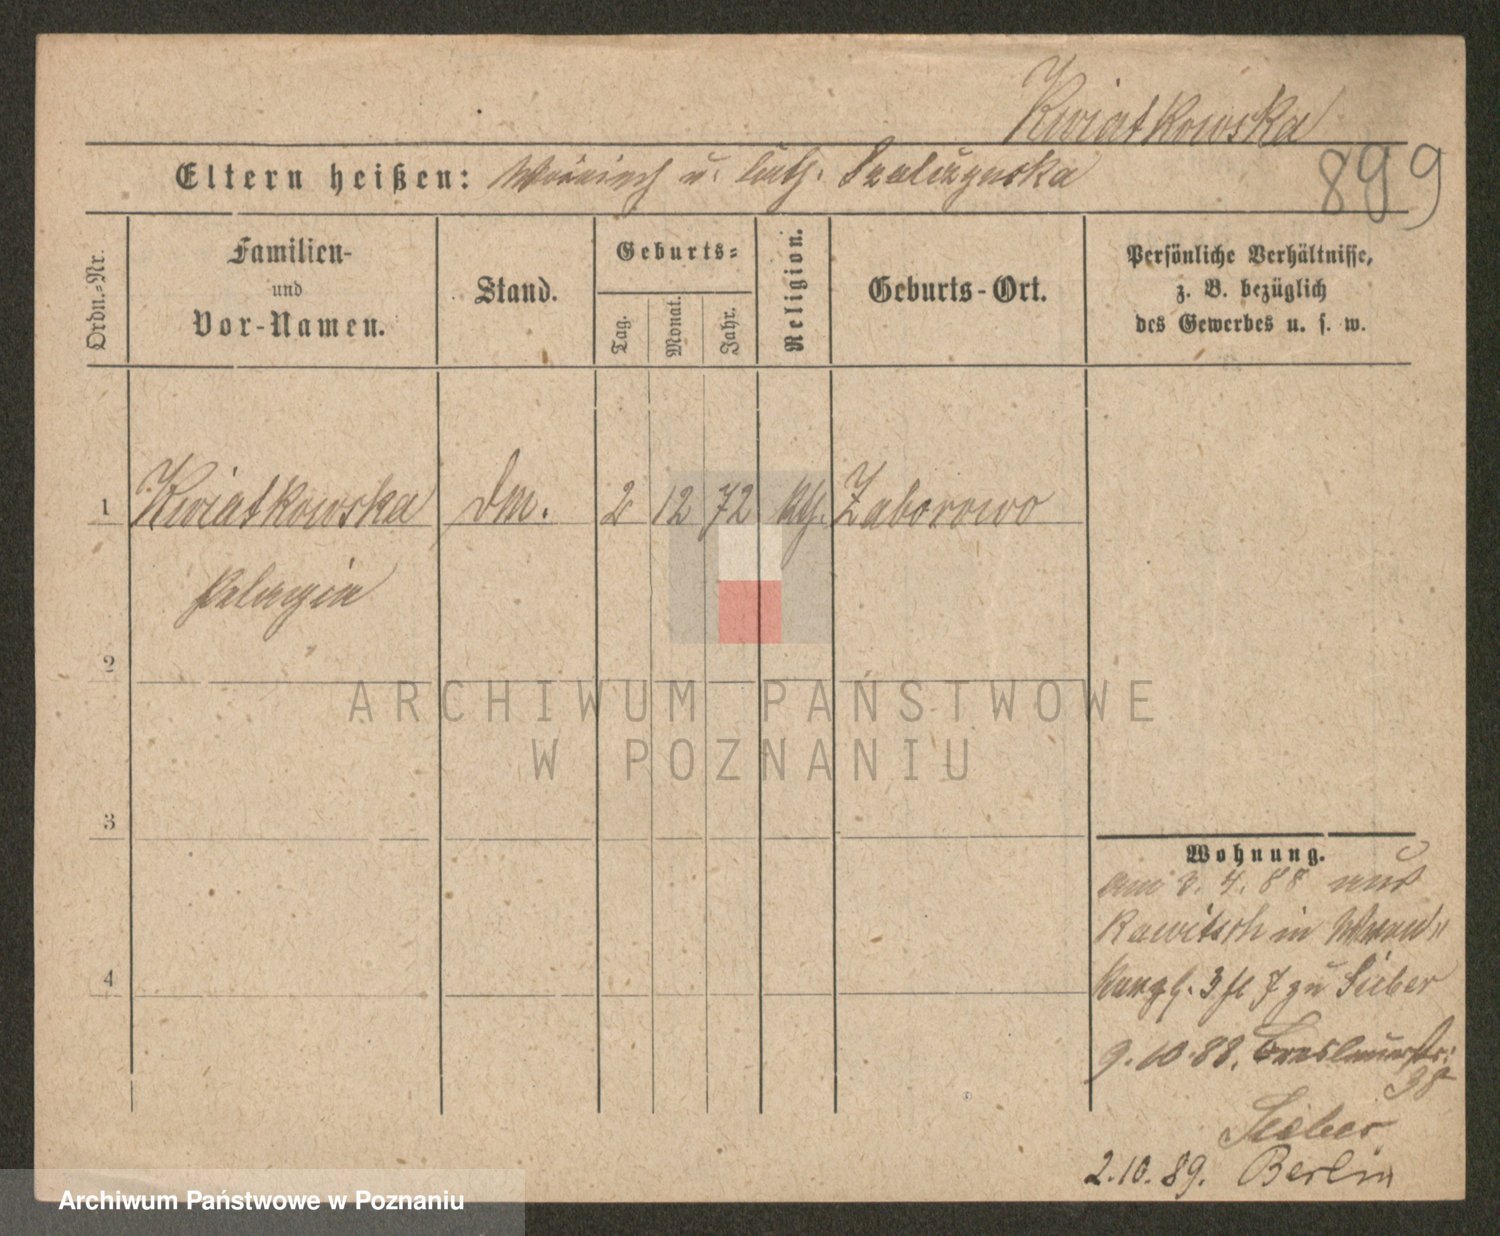 Kwiatkowska
899
Eltern heißen: u. Cath. Szulczynska
Ordn.-Nr.
Familien-
und
Vor-Namen.
Stand.
Geburts-
Tag.
Monat.
Jahr.
Religion.
Geburts-Ort.
Persönliche Verhältnisse,
z. B. bezüglich
des Gewerbes u. s. w.
1 Kwiatkowska Dm. 2 12 72 kth. Zaborowo
Pelagia
2
3
4
Wohnung.
am 3. 4. 88 aus
Rawitsch in
3 zu Sieber
9.10.88. Breslauerstr.
38
Sieber
2.10.89. Berlin
ARCHIWUM PAŃSTWOWE
W POZNANIU
Archiwum Państwowe w Poznaniu